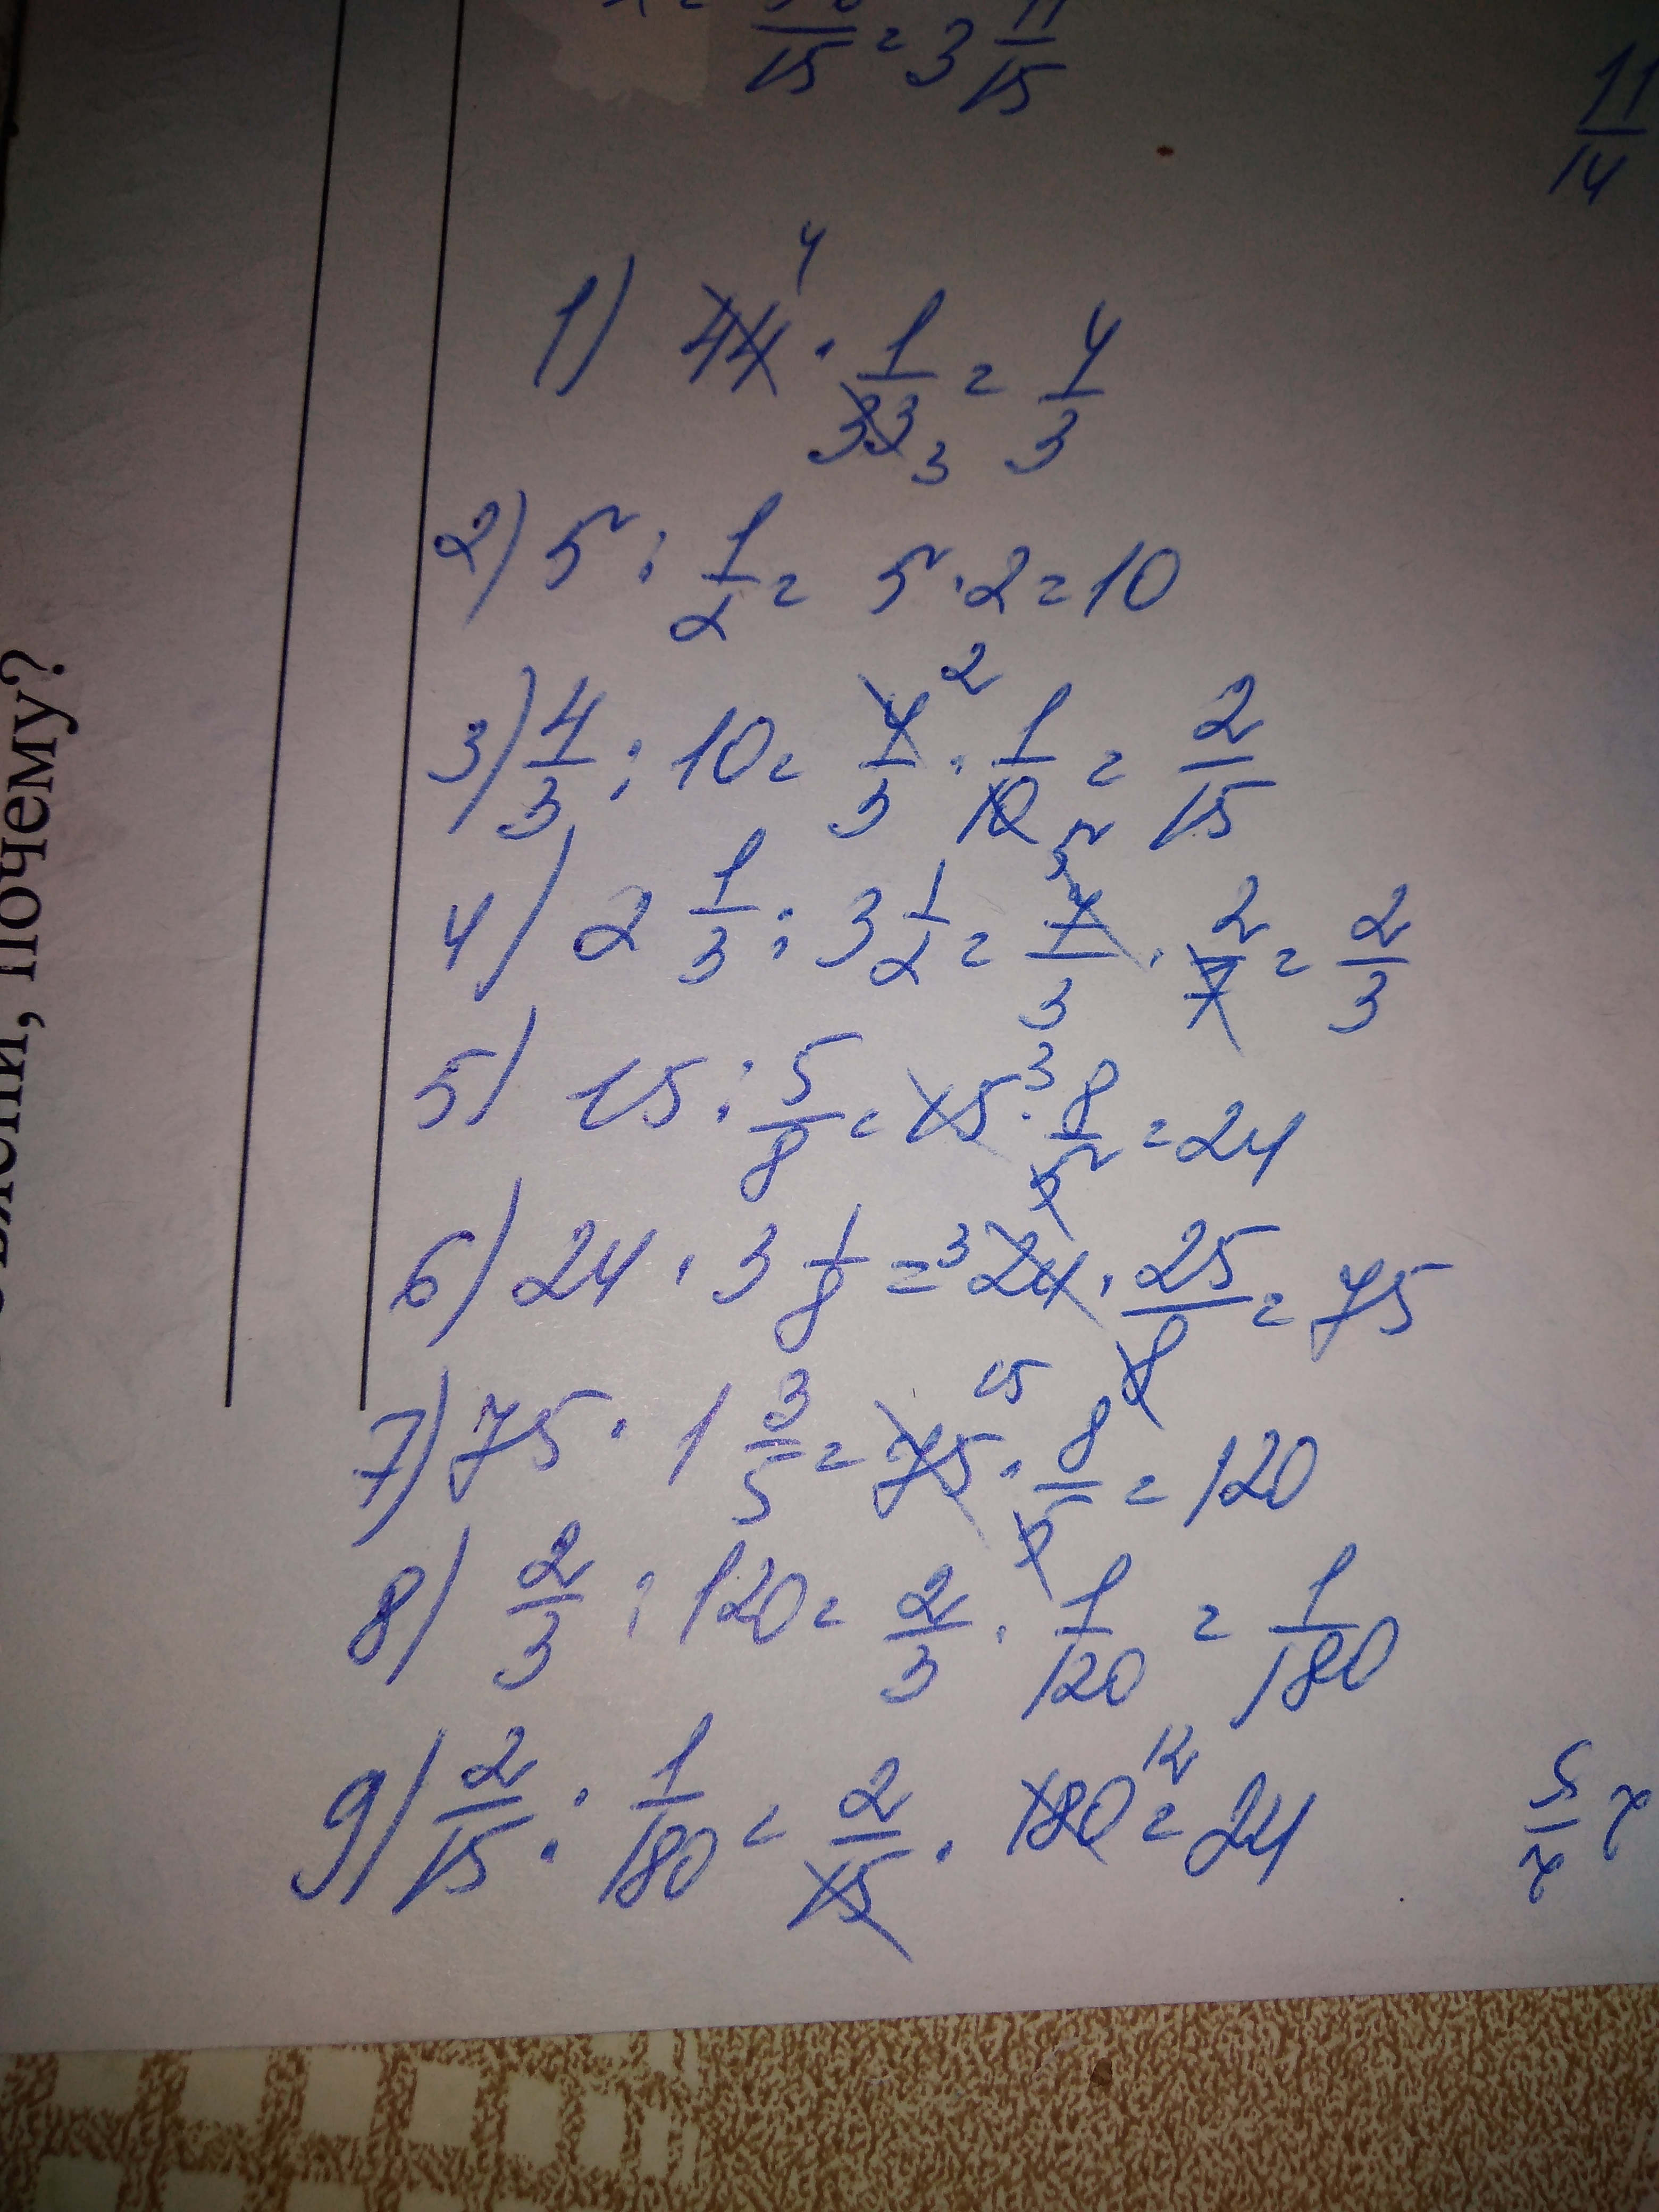 15 = 3 11/15
11/14
1) 44 4 · 1/33 3 = 4/3
2) 5 : 1/2 = 5 · 2 = 10
3) 4/3 : 10 = 4/3 2 · 1/10 5 = 2/15
4) 2 1/3 : 3 1/2 = 7/3 · 2/7 = 2/3
5) 15 : 5/8 = 15 3 · 8/5 = 24
6) 24 · 3 1/8 = 3 24 · 25/8 = 75
7) 75 · 1 3/5 = 75 15 · 8/5 = 120
8) 2/3 : 120 = 2/3 · 1/120 = 1/180
9) 2/15 : 1/180 = 2/15 · 180 12 = 24
почему?